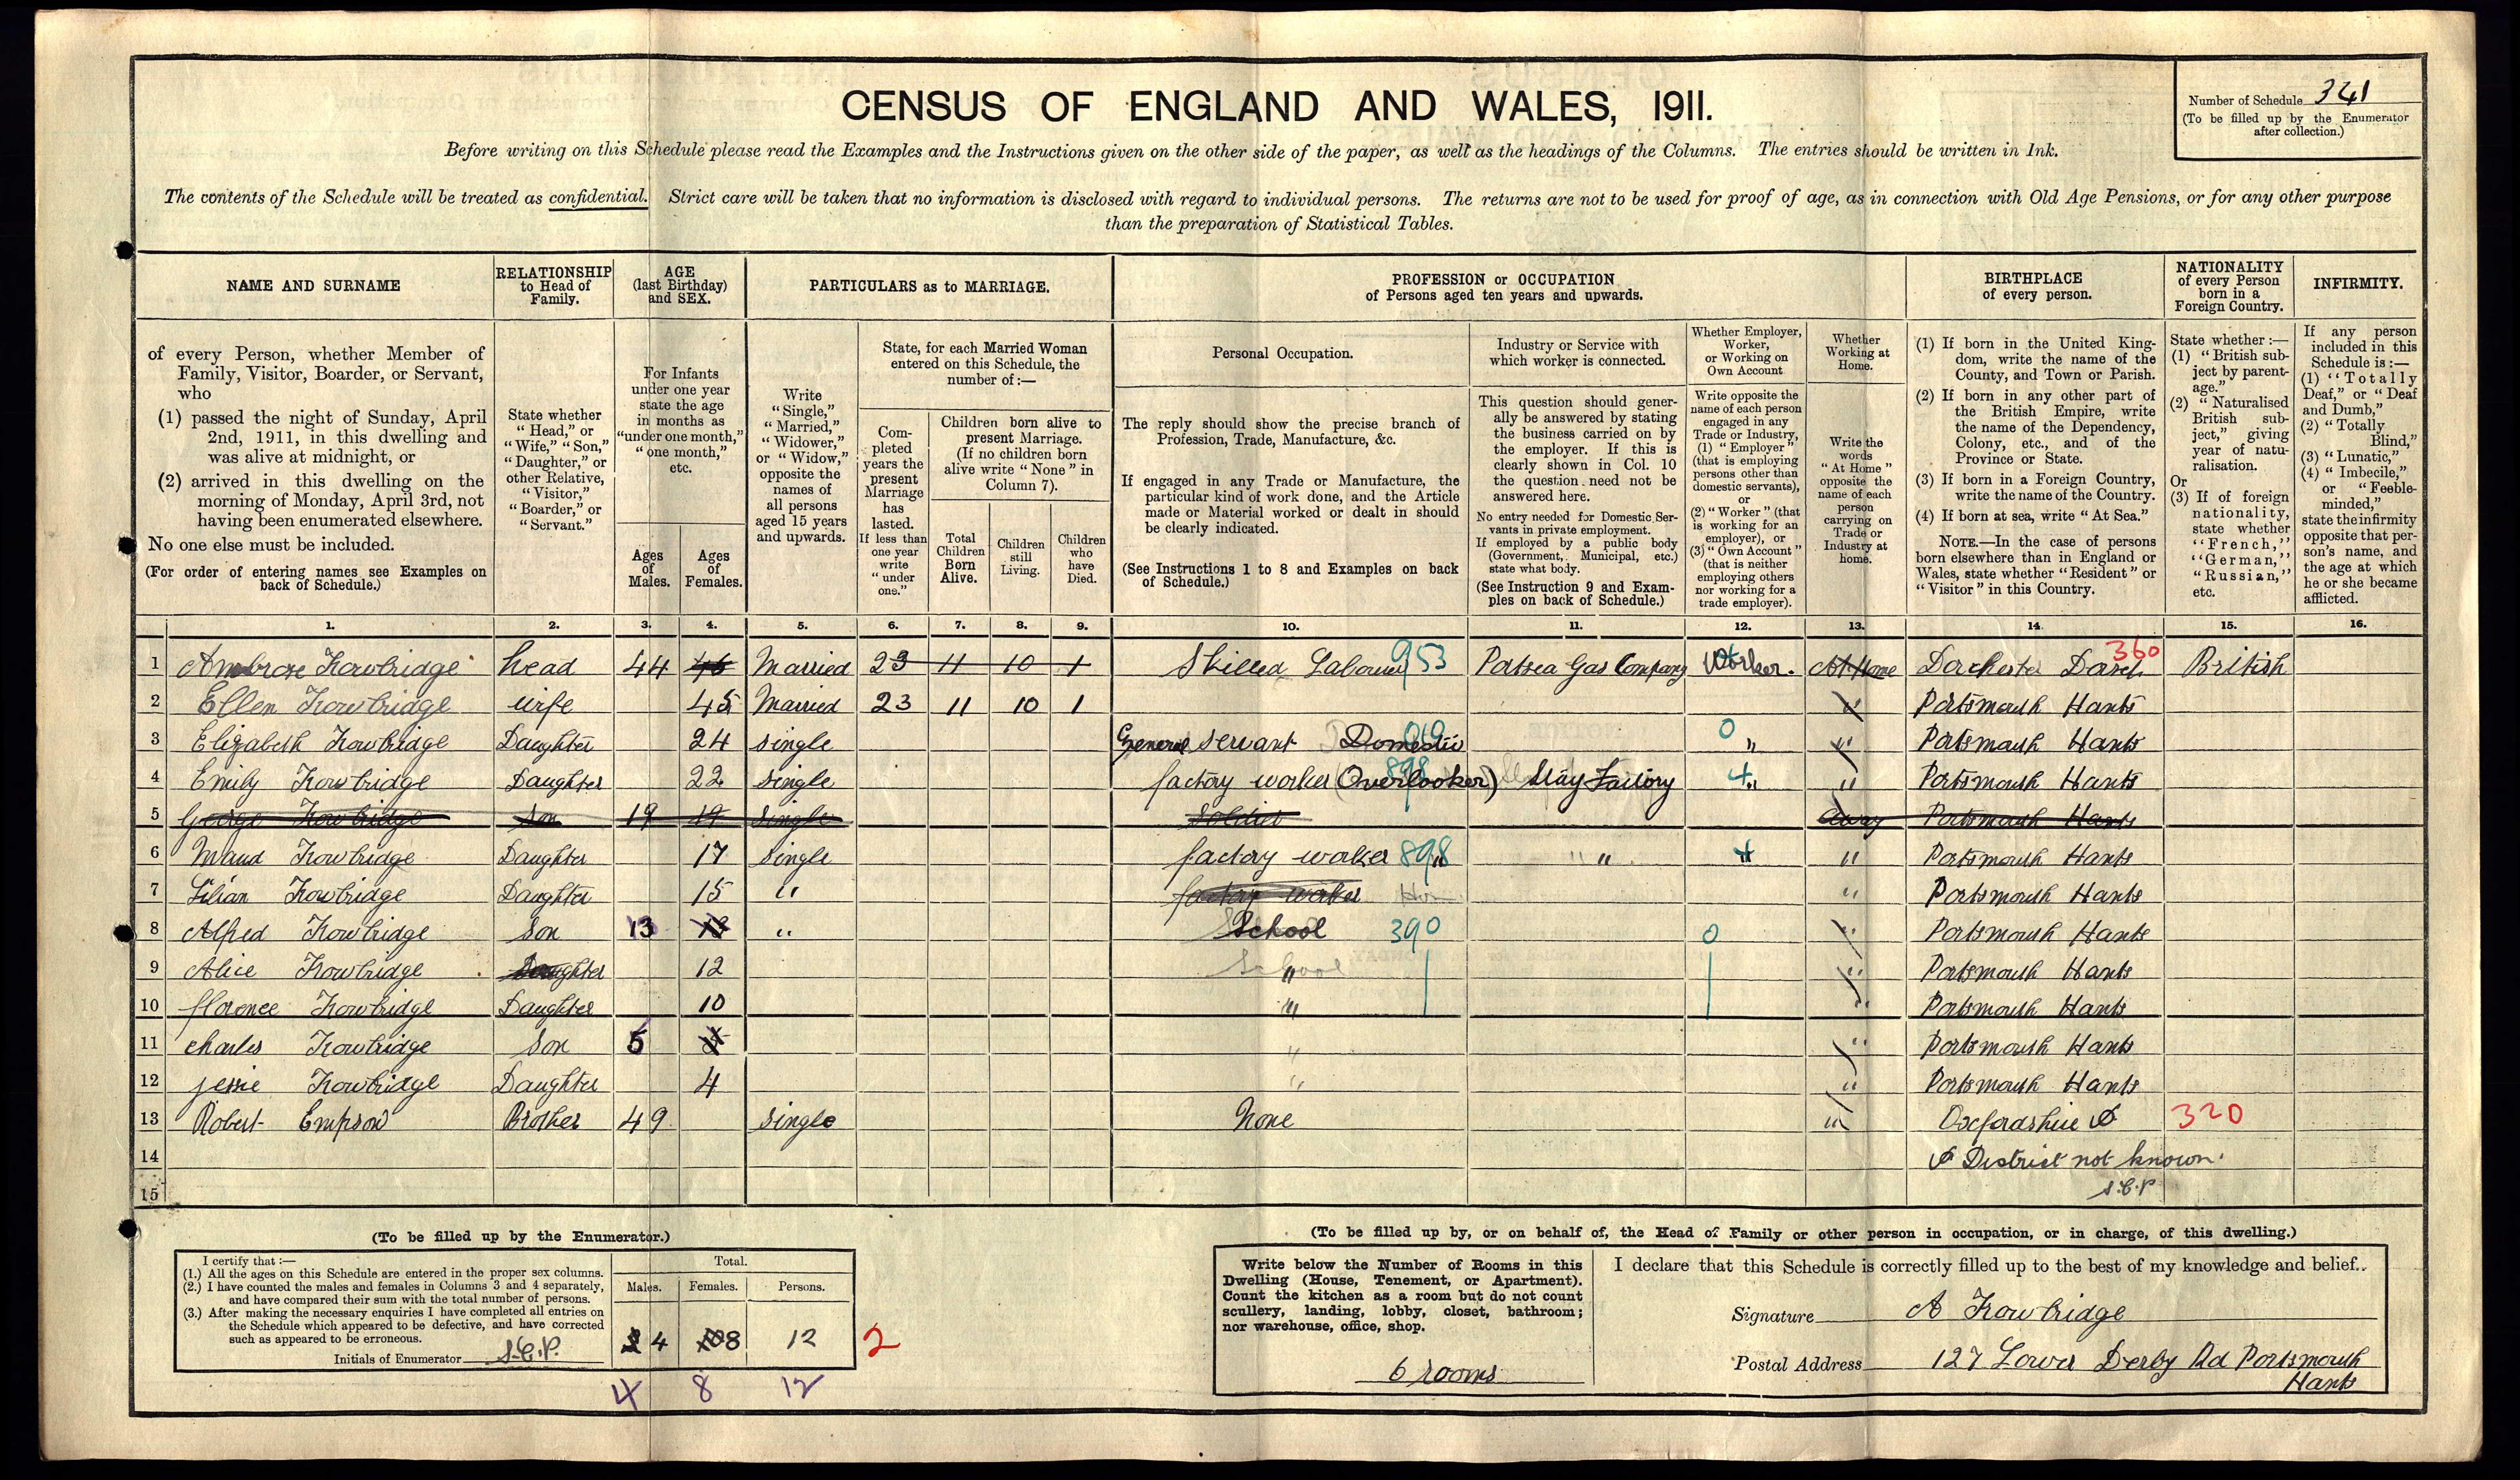 CENSUS OF ENGLAND AND WALES, 1911.
Number of Schedule 341
(To be filled up by the Enumerator after collection.)
Before writing on this Schedule please read the Examples and the Instructions given on the other side of the paper, as well as the headings of the Columns. The entries should be written in Ink.
The contents of the Schedule will be treated as confidential. Strict care will be taken that no information is disclosed with regard to individual persons. The returns are not to be used for proof of age, as in connection with Old Age Pensions, or for any other purpose
than the preparation of Statistical Tables.
NAME AND SURNAME
of every Person, whether Member of
Family, Visitor, Boarder, or Servant,
who
(1) passed the night of Sunday, April
2nd, 1911, in this dwelling and
was alive at midnight, or
(2) arrived in this dwelling on the
morning of Monday, April 3rd, not
having been enumerated elsewhere.
No one else must be included.
(For order of entering names see Examples on
back of Schedule.)
RELATIONSHIP
to Head of
Family.
State whether
"Head," or
"Wife," "Son,"
"Daughter," or
other Relative,
"Visitor,"
"Boarder," or
"Servant."
AGE
(last Birthday)
and SEX.
For Infants
under one year
state the age
in months as
"under one month,"
"one month,"
etc.
Ages
of
Males.
Ages
of
Females.
PARTICULARS as to MARRIAGE.
Write
"Single,"
"Married,"
"Widower,"
or "Widow,"
opposite the
names of
all persons
aged 15 years
and upwards.
State, for each Married Woman
entered on this Schedule, the
number of:—
Com-
pleted
years the
present
Marriage
has
lasted.
If less than
one year
write
"under
one."
Children born alive to
present Marriage.
(If no children born
alive write "None" in
Column 7).
Total
Children
Born
Alive.
Children
still
Living.
Children
who
have
Died.
PROFESSION or OCCUPATION
of Persons aged ten years and upwards.
Personal Occupation.
The reply should show the precise branch of
Profession, Trade, Manufacture, &c.
If engaged in any Trade or Manufacture, the
particular kind of work done, and the Article
made or Material worked or dealt in should
be clearly indicated.
(See Instructions 1 to 8 and Examples on back
of Schedule.)
Industry or Service with
which worker is connected.
This question should gener-
ally be answered by stating
the business carried on by
the employer. If this is
clearly shown in Col. 10
the question need not be
answered here.
No entry needed for Domestic Ser-
vants in private employment.
If employed by a public body
(Government, Municipal, etc.)
state what body.
(See Instruction 9 and Exam-
ples on back of Schedule.)
Whether Employer,
Worker,
or Working on
Own Account
Write opposite the
name of each person
engaged in any
Trade or Industry,
(1) "Employer"
(that is employing
persons other than
domestic servants),
or
(2) "Worker" (that
is working for an
employer), or
(3) "Own Account"
(that is neither
employing others
nor working for a
trade employer).
Whether
Working at
Home.
Write the
words
"At Home"
opposite the
name of each
person
carrying on
Trade or
Industry at
home.
BIRTHPLACE
of every person.
(1) If born in the United King-
dom, write the name of the
County, and Town or Parish.
(2) If born in any other part of
the British Empire, write
the name of the Dependency,
Colony, etc., and of the
Province or State.
(3) If born in a Foreign Country,
write the name of the Country.
(4) If born at sea, write "At Sea."
NOTE.—In the case of persons
born elsewhere than in England or
Wales, state whether "Resident" or
"Visitor" in this Country.
NATIONALITY
of every Person
born in a
Foreign Country.
State whether:—
(1) "British sub-
ject by parent-
age."
(2) "Naturalised
British sub-
ject," giving
year of natu-
ralisation.
Or
(3) If of foreign
nationality,
state whether
"French,"
"German,"
"Russian,"
etc.
INFIRMITY.
If any person
included in this
Schedule is:—
(1) "Totally
Deaf," or "Deaf
and Dumb,"
(2) "Totally
Blind,"
(3) "Lunatic,"
(4) "Imbecile,"
or "Feeble-
minded,"
state the infirmity
opposite that per-
son's name, and
the age at which
he or she became
afflicted.
1. 2. 3. 4. 5. 6. 7. 8. 9. 10. 11. 12. 13. 14. 15. 16.
1 Ambrose Trowbridge head 44 46 Married 23 11 10 1 Skilled Labourer 953 Portsea Gas Company Worker. At Home Dorchester Dorset 360 British
2 Ellen Trowbridge wife 45 Married 23 11 10 1 " Portsmouth Hants
3 Elizabeth Trowbridge Daughter 24 single General servant Domestic 0 " " Portsmouth Hants
4 Emily Trowbridge Daughter 22 single factory worker (Overlooker) 898 Stay Factory 4 " " Portsmouth Hants
5 George Trowbridge Son 19 19 single Soldier away Portsmouth Hants
6 Maud Trowbridge Daughter 17 single factory worker 898 " " " 4 " Portsmouth Hants
7 Lilian Trowbridge Daughter 15 " factory worker " Portsmouth Hants
8 Alfred Trowbridge Son 13 13 " School 390 0 " Portsmouth Hants
9 Alice Trowbridge Daughter 12 School " " Portsmouth Hants
10 florence Trowbridge Daughter 10 " " Portsmouth Hants
11 charles Trowbridge Son 5 " " Portsmouth Hants
12 jessie Trowbridge Daughter 4 " " Portsmouth Hants
13 Robert Empson Brother 49 single None " Oxfordshire 320
14 District not known.
15 S.C.P.
(To be filled up by the Enumerator.)
I certify that:—
(1.) All the ages on this Schedule are entered in the proper sex columns.
(2.) I have counted the males and females in Columns 3 and 4 separately,
and have compared their sum with the total number of persons.
(3.) After making the necessary enquiries I have completed all entries on
the Schedule which appeared to be defective, and have corrected
such as appeared to be erroneous.
Initials of Enumerator S.C.P.
Total.
Males. Females. Persons.
4 10 8 12 2
4 8 12
(To be filled up by, or on behalf of, the Head of Family or other person in occupation, or in charge, of this dwelling.)
Write below the Number of Rooms in this
Dwelling (House, Tenement, or Apartment).
Count the kitchen as a room but do not count
scullery, landing, lobby, closet, bathroom;
nor warehouse, office, shop.
6 rooms
I declare that this Schedule is correctly filled up to the best of my knowledge and belief.
Signature A Trowbridge
Postal Address 127 Lower Derby Rd Portsmouth
Hants